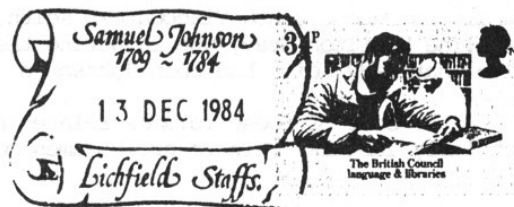 Samuel Johnson
1709 ~ 1784
13 DEC 1984
Lichfield Staffs.
34P
The British Council
language & libraries